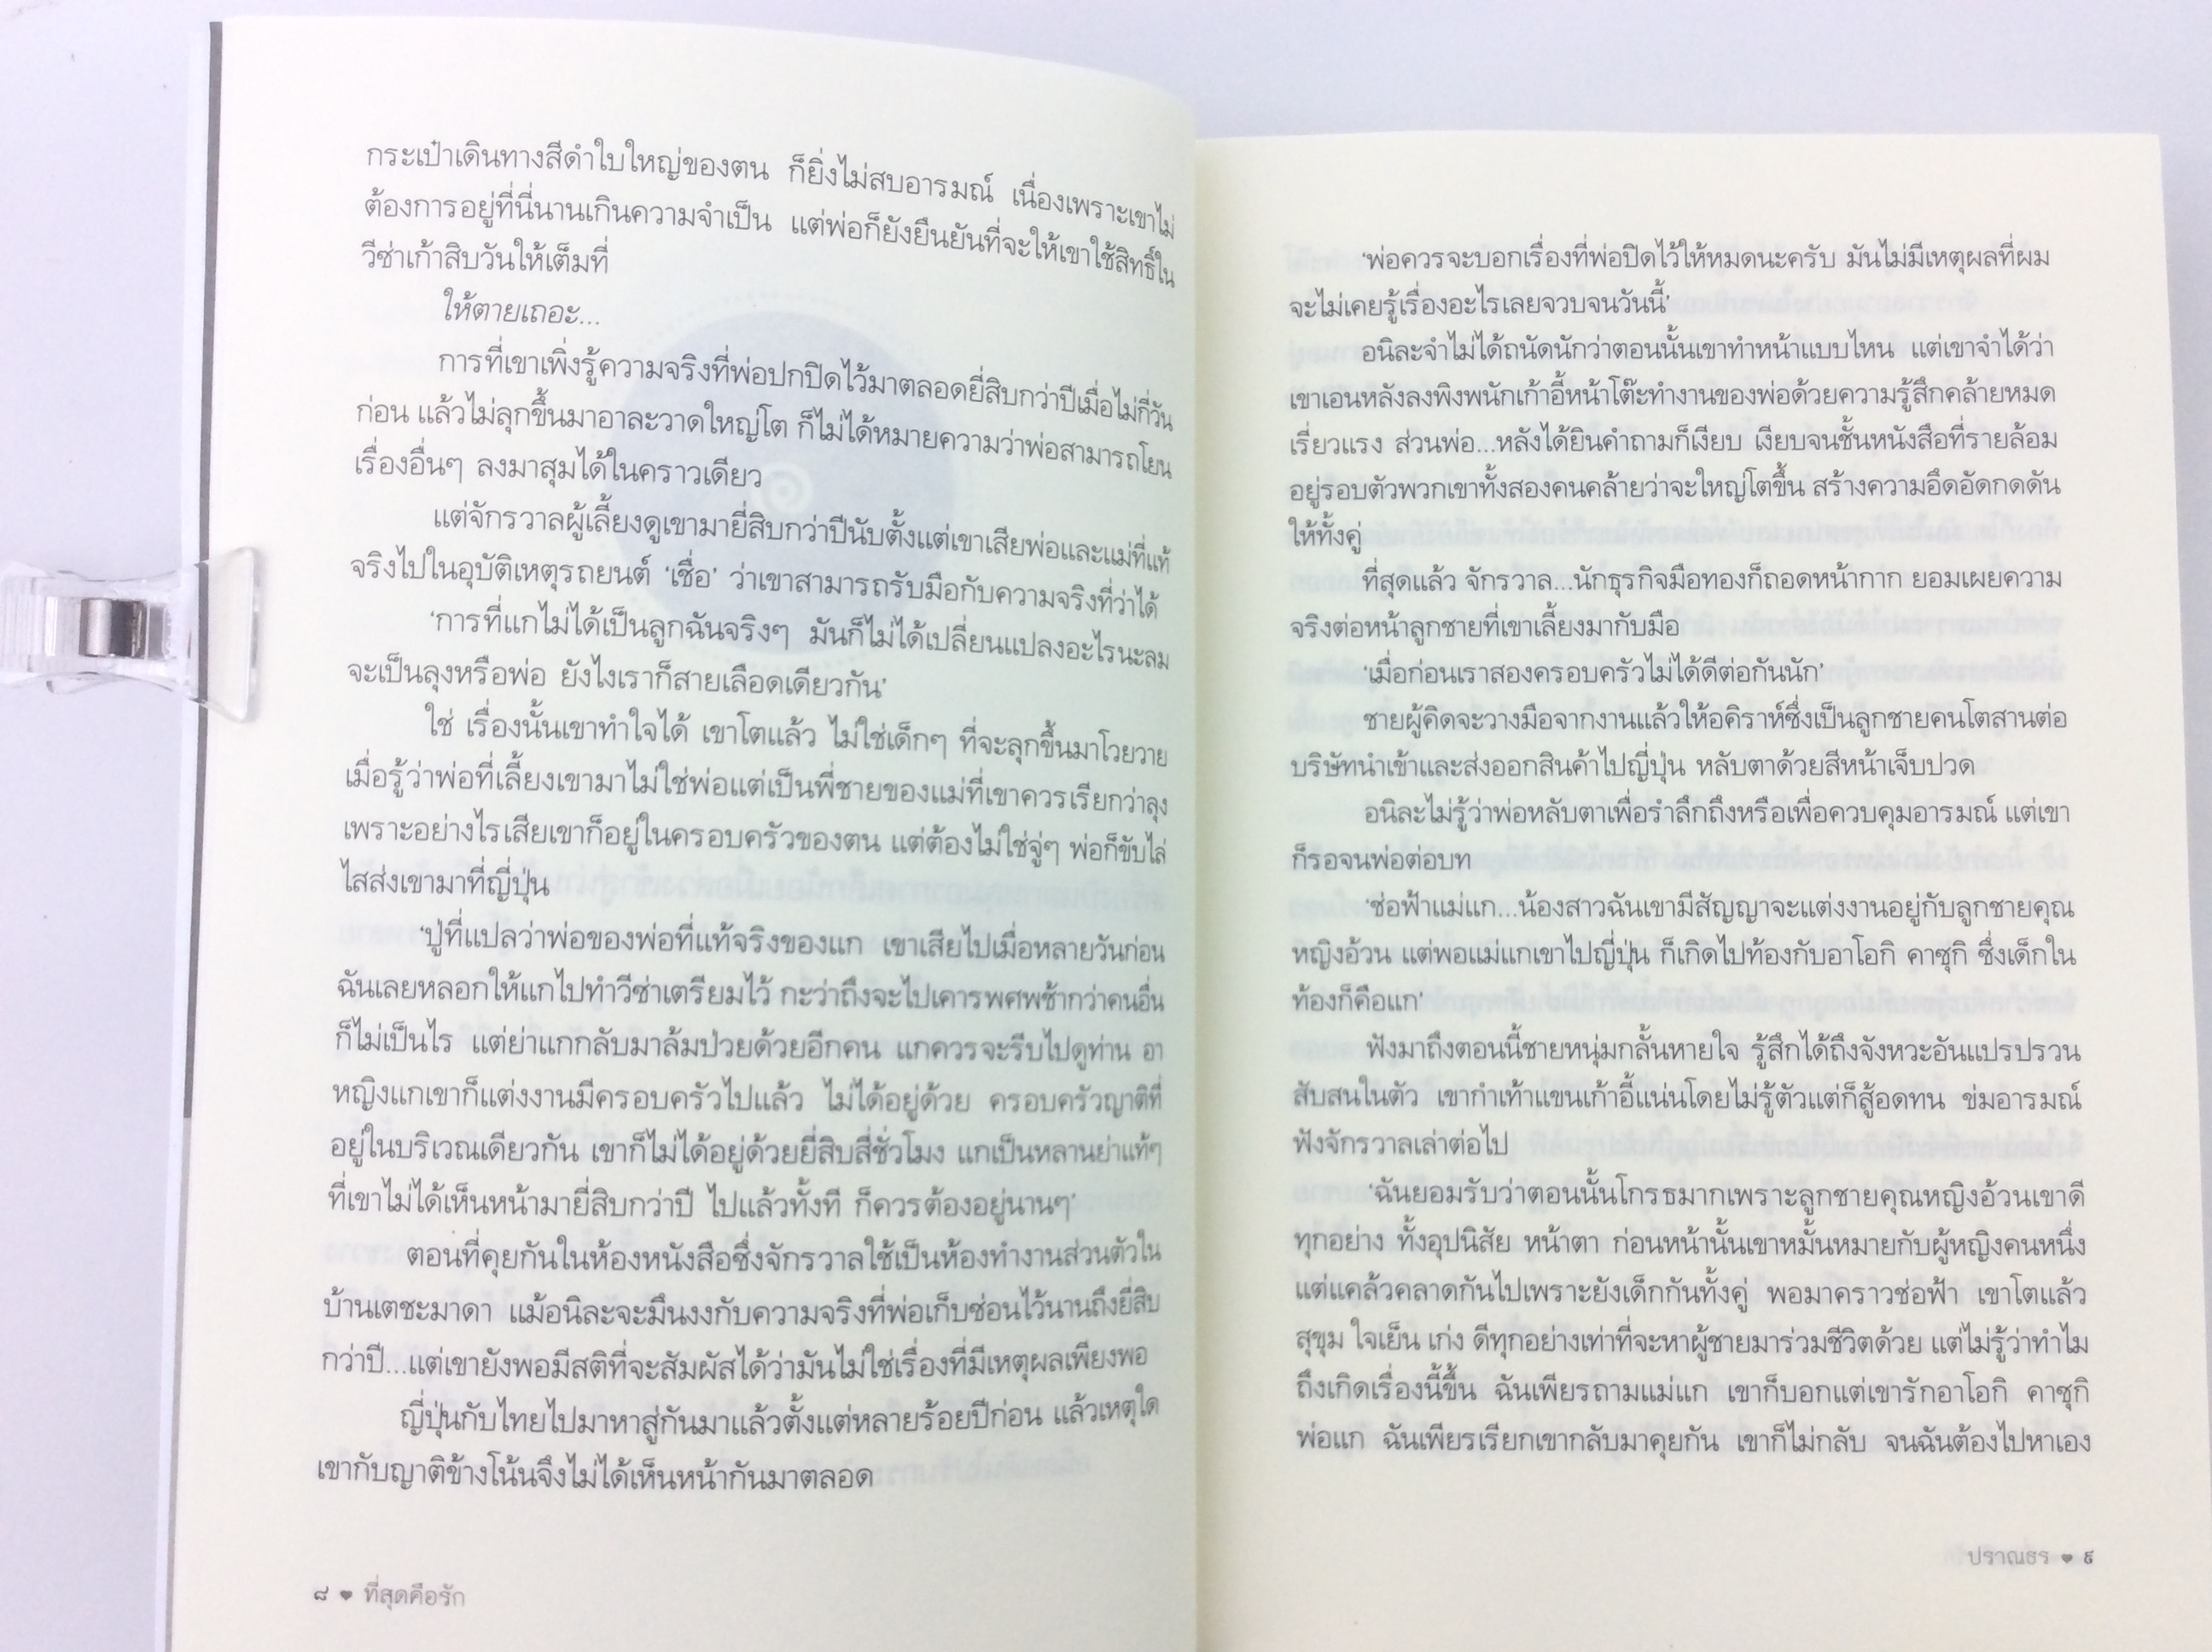 กระเป๋าเดินทางสีดำใบใหญ่ของตน ก็ยิ่งไม่สบอารมณ์ เนื่องเพราะเขาไม่
ต้องการอยู่ที่นี่นานเกินความจำเป็น แต่พ่อก็ยังยืนยันที่จะให้เขาใช้สิทธิ์ใน
วีซ่าเก้าสิบวันให้เต็มที่
ให้ตายเถอะ...
การที่เขาเพิ่งรู้ความจริงที่พ่อปกปิดไว้มาตลอดยี่สิบกว่าปีเมื่อไม่กี่วัน
ก่อน แล้วไม่ลุกขึ้นมาอาละวาดใหญ่โต ก็ไม่ได้หมายความว่าพ่อสามารถโยน
เรื่องอื่นๆ ลงมาสุมได้ในคราวเดียว
แต่จักรวาลผู้เลี้ยงดูเขามายี่สิบกว่าปีนับตั้งแต่เขาเสียพ่อและแม่ที่แท้
จริงไปในอุบัติเหตุรถยนต์ ‘เชื่อ’ ว่าเขาสามารถรับมือกับความจริงที่ว่าได้
‘การที่แกไม่ได้เป็นลูกฉันจริงๆ มันก็ไม่ได้เปลี่ยนแปลงอะไรนะลม
จะเป็นลุงหรือพ่อ ยังไงเราก็สายเลือดเดียวกัน’
ใช่ เรื่องนั้นเขาทำใจได้ เขาโตแล้ว ไม่ใช่เด็กๆ ที่จะลุกขึ้นมาโวยวาย
เมื่อรู้ว่าพ่อที่เลี้ยงเขามาไม่ใช่พ่อแต่เป็นพี่ชายของแม่ที่เขาควรเรียกว่าลุง
เพราะอย่างไรเสียเขาก็อยู่ในครอบครัวของตน แต่ต้องไม่ใช่จู่ๆ พ่อก็ขับไล่
ไสส่งเขามาที่ญี่ปุ่น
‘ปู่ที่แปลว่าพ่อของพ่อที่แท้จริงของแก เขาเสียไปเมื่อหลายวันก่อน
ฉันเลยหลอกให้แกไปทำวีซ่าเตรียมไว้ กะว่าถึงจะไปเคารพศพช้ากว่าคนอื่น
ก็ไม่เป็นไร แต่ย่าแกกลับมาล้มป่วยด้วยอีกคน แกควรจะรีบไปดูท่าน อา
หญิงแกเขาก็แต่งงานมีครอบครัวไปแล้ว ไม่ได้อยู่ด้วย ครอบครัวญาติที่
อยู่ในบริเวณเดียวกัน เขาก็ไม่ได้อยู่ด้วยยี่สิบสี่ชั่วโมง แกเป็นหลานย่าแท้ๆ
ที่เขาไม่ได้เห็นหน้ามายี่สิบกว่าปี ไปแล้วทั้งที ก็ควรต้องอยู่นานๆ’
ตอนที่คุยกันในห้องหนังสือซึ่งจักรวาลใช้เป็นห้องทำงานส่วนตัวใน
บ้านเตชะมาดา แม้อนิละจะมึนงงกับความจริงที่พ่อเก็บซ่อนไว้นานถึงยี่สิบ
กว่าปี...แต่เขายังพอมีสติที่จะสัมผัสได้ว่ามันไม่ใช่เรื่องที่มีเหตุผลเพียงพอ
ญี่ปุ่นกับไทยไปมาหาสู่กันมาแล้วตั้งแต่หลายร้อยปีก่อน แล้วเหตุใด
เขากับญาติข้างโน้นจึงไม่ได้เห็นหน้ากันมาตลอด
๘ ♥ ที่สุดคือรัก
‘พ่อควรจะบอกเรื่องที่พ่อปิดไว้ให้หมดนะครับ มันไม่มีเหตุผลที่ผม
จะไม่เคยรู้เรื่องอะไรเลยจวบจนวันนี้’
อนิละจำไม่ได้ถนัดนักว่าตอนนั้นเขาทำหน้าแบบไหน แต่เขาจำได้ว่า
เขาเอนหลังลงพิงพนักเก้าอี้หน้าโต๊ะทำงานของพ่อด้วยความรู้สึกคล้ายหมด
เรี่ยวแรง ส่วนพ่อ...หลังได้ยินคำถามก็เงียบ เงียบจนชั้นหนังสือที่รายล้อม
อยู่รอบตัวพวกเขาทั้งสองคนคล้ายว่าจะใหญ่โตขึ้น สร้างความอึดอัดกดดัน
ให้ทั้งคู่
ที่สุดแล้ว จักรวาล...นักธุรกิจมือทองก็ถอดหน้ากาก ยอมเผยความ
จริงต่อหน้าลูกชายที่เขาเลี้ยงมากับมือ
‘เมื่อก่อนเราสองครอบครัวไม่ได้ดีต่อกันนัก’
ชายผู้คิดจะวางมือจากงานแล้วให้อคิราห์ซึ่งเป็นลูกชายคนโตสานต่อ
บริษัทนำเข้าและส่งออกสินค้าไปญี่ปุ่น หลับตาด้วยสีหน้าเจ็บปวด
อนิละไม่รู้ว่าพ่อหลับตาเพื่อรำลึกถึงหรือเพื่อควบคุมอารมณ์ แต่เขา
ก็รอจนพ่อต่อบท
‘ช่อฟ้าแม่แก...น้องสาวฉันเขามีสัญญาจะแต่งงานอยู่กับลูกชายคุณ
หญิงอ้วน แต่พอแม่แกเขาไปญี่ปุ่น ก็เกิดไปท้องกับอาโอกิ คาซุกิ ซึ่งเด็กใน
ท้องก็คือแก’
ฟังมาถึงตอนนี้ชายหนุ่มกลั้นหายใจ รู้สึกได้ถึงจังหวะอันแปรปรวน
สับสนในตัว เขากำเท้าแขนเก้าอี้แน่นโดยไม่รู้ตัวแต่ก็สู้อดทน ข่มอารมณ์
ฟังจักรวาลเล่าต่อไป
‘ฉันยอมรับว่าตอนนั้นโกรธมากเพราะลูกชายคุณหญิงอ้วนเขาดี
ทุกอย่าง ทั้งอุปนิสัย หน้าตา ก่อนหน้านั้นเขาหมั้นหมายกับผู้หญิงคนหนึ่ง
แต่แคล้วคลาดกันไปเพราะยังเด็กกันทั้งคู่ พอมาคราวช่อฟ้า เขาโตแล้ว
สุขุม ใจเย็น เก่ง ดีทุกอย่างเท่าที่จะหาผู้ชายมาร่วมชีวิตด้วย แต่ไม่รู้ว่าทำไม
ถึงเกิดเรื่องนี้ขึ้น ฉันเพียรถามแม่แก เขาก็บอกแต่เขารักอาโอกิ คาซุกิ
พ่อแก ฉันเพียรเรียกเขากลับมาคุยกัน เขาก็ไม่กลับ จนฉันต้องไปหาเอง
ปราณธร ♥ ๙